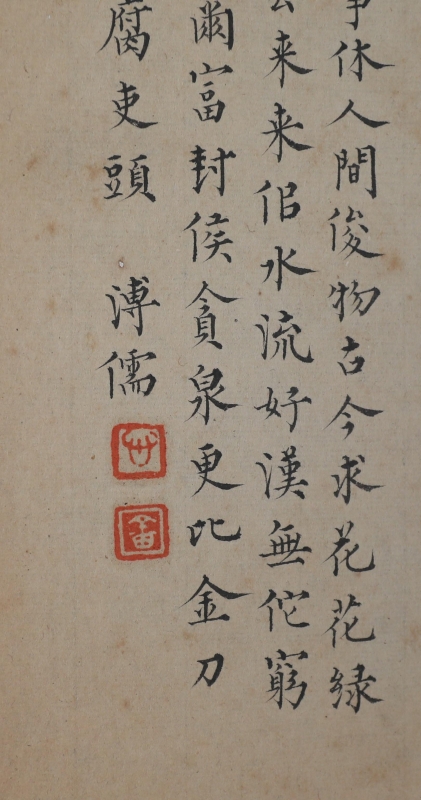 休人間俊物古今求花花緑
来来佀水流好漢無佗窮
爾富封侯貪泉更比金刀
腐吏頭 溥儒